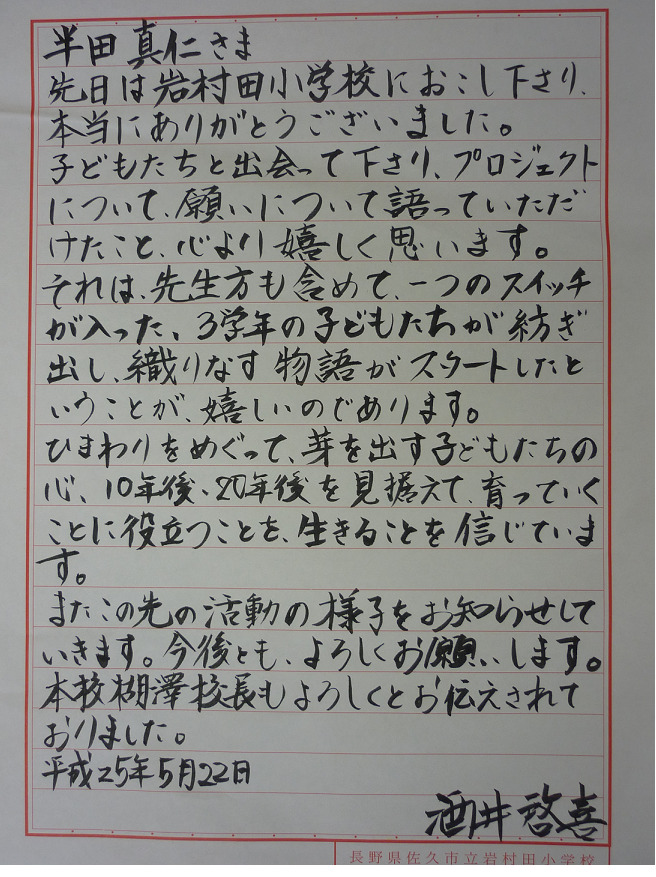 半田真仁さま
先日は岩村田小学校におこし下さり、
本当にありがとうございました。
子どもたちと出会って下さり、プロジェクト
について、願いについて語っていただ
けたこと、心より嬉しく思います。
それは、先生方も含めて、一つのスイッチ
が入った、3学年の子どもたちが紡ぎ
出し、織りなす物語がスタートしたと
いうことが、嬉しいのであります。
ひまわりをめぐって、芽を出す子どもたちの
心、10年後、20年後を見据えて、育っていく
ことに役立つことを、生きることを信じていま
す。
またこの先の活動の様子をお知らせして
いきます。今後とも、よろしくお願いします。
本校楜澤校長もよろしくとお伝えされて
おりました。
平成25年5月22日
酒井啓喜
長野県佐久市立岩村田小学校